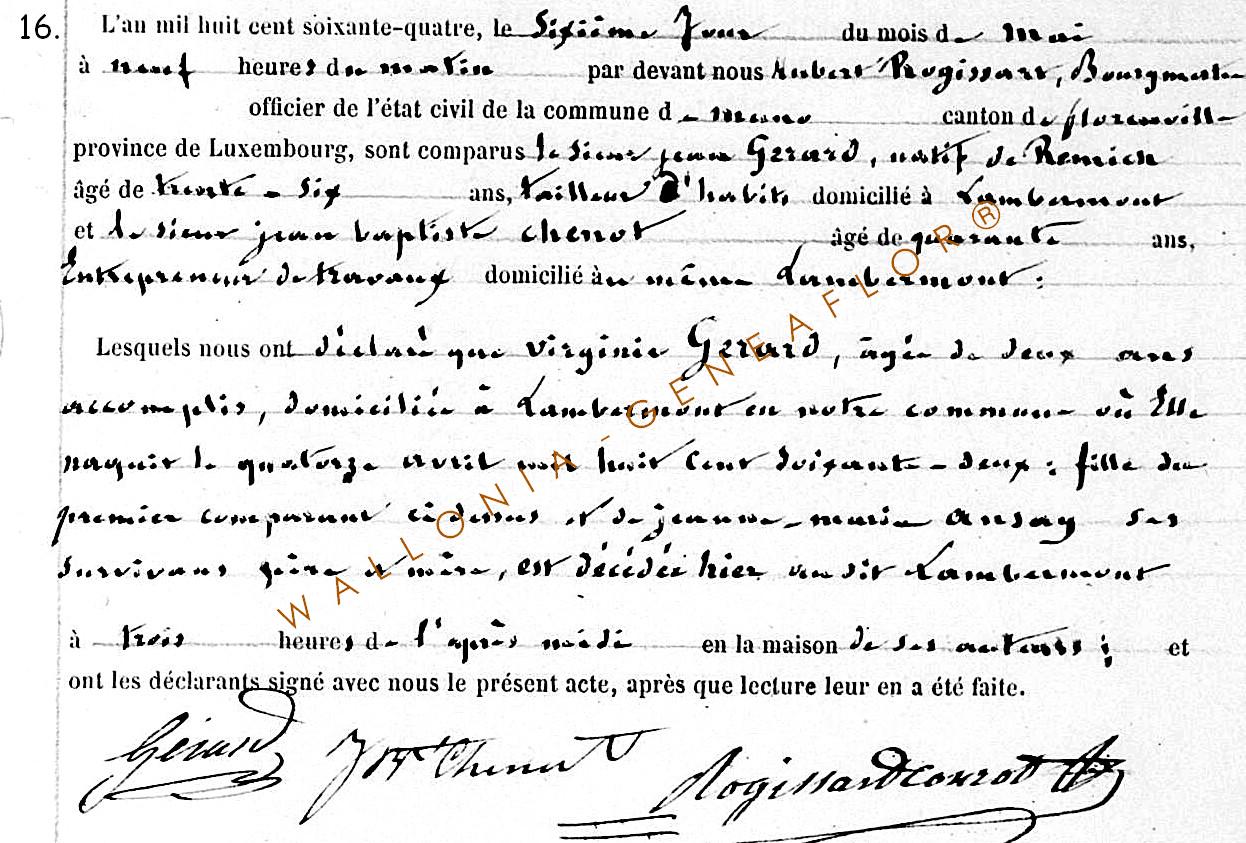 16. L'an mil huit cent soixante-quatre, le Sixième Jour du mois de mai
à neuf heures du matin par devant nous hubert Rogissart, Bourgmestre
officier de l'état civil de la commune de muno canton de florenville
province de Luxembourg, sont comparus le sieur jean Gerard, natif de Remich
âgé de trente-six ans, tailleur d'habits domicilié à Lambermont
et le sieur jean baptiste chenot âgé de quarante ans,
Entrepreneur de travaux domicilié au même Lambermont :
Lesquels nous ont déclaré que virginie Gerard, âgée de deux ans
accomplis, domiciliée à Lambermont en notre commune où Elle
naquit le quatorze avril mil huit cent soixante-deux : fille du
premier comparant ci dessus et de jeanne-marie ansay ses
survivans père et mère, est décédée hier au dit Lambermont
à trois heures de l'après midi en la maison de ses auteurs ; et
ont les déclarants signé avec nous le présent acte, après que lecture leur en a été faite.
Gérard JBte Chenot Rogissart
WALLONIA-GENEAFLOR®